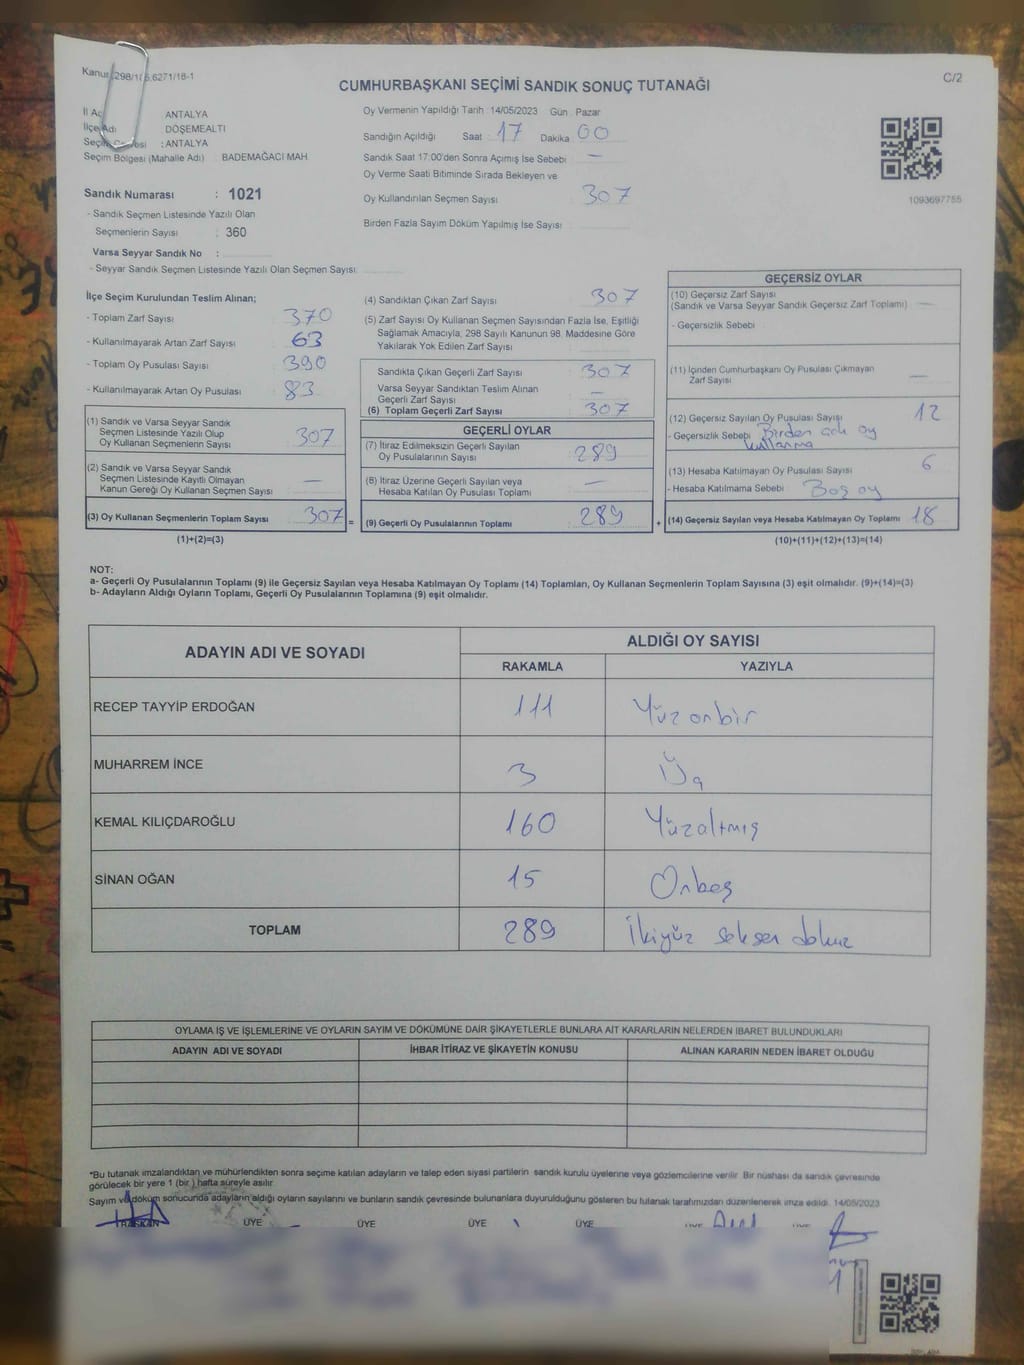 Kanun 298/1 6271/18-1
C/2
CUMHURBAŞKANI SEÇİMİ SANDIK SONUÇ TUTANAĞI
İl Adı ANTALYA
İlçe Adı DÖŞEMEALTI
Seçim : ANTALYA
Seçim Bölgesi (Mahalle Adı) BADEMAĞACI MAH.
Sandık Numarası : 1021
- Sandık Seçmen Listesinde Yazılı Olan
Seçmenlerin Sayısı : 360
Varsa Seyyar Sandık No :
- Seyyar Sandık Seçmen Listesinde Yazılı Olan Seçmen Sayısı
Oy Vermenin Yapıldığı Tarih : 14/05/2023 Gün : Pazar
Sandığın Açıldığı Saat : 17 Dakika 00
Sandık Saat 17:00'den Sonra Açılmış İse Sebebi : —
Oy Verme Saati Bitiminde Sırada Bekleyen ve
Oy Kullandırılan Seçmen Sayısı 307
Birden Fazla Sayım Döküm Yapılmış İse Sayısı
1093697755
İlçe Seçim Kurulundan Teslim Alınan;
- Toplam Zarf Sayısı 370
- Kullanılmayarak Artan Zarf Sayısı 63
- Toplam Oy Pusulası Sayısı 390
- Kullanılmayarak Artan Oy Pusulası 83
(1) Sandık ve Varsa Seyyar Sandık
Seçmen Listesinde Yazılı Olup
Oy Kullanan Seçmenlerin Sayısı 307
(2) Sandık ve Varsa Seyyar Sandık
Seçmen Listesinde Kayıtlı Olmayan
Kanun Gereği Oy Kullanan Seçmen Sayısı —
(3) Oy Kullanan Seçmenlerin Toplam Sayısı 307 =
(1)+(2)=(3)
(4) Sandıktan Çıkan Zarf Sayısı 307
(5) Zarf Sayısı Oy Kullanan Seçmen Sayısından Fazla İse, Eşitliği
Sağlamak Amacıyla, 298 Sayılı Kanunun 98. Maddesine Göre
Yakılarak Yok Edilen Zarf Sayısı
Sandıkta Çıkan Geçerli Zarf Sayısı 307
Varsa Seyyar Sandıktan Teslim Alınan
Geçerli Zarf Sayısı —
(6) Toplam Geçerli Zarf Sayısı 307
GEÇERLİ OYLAR
(7) İtiraz Edilmeksizin Geçerli Sayılan
Oy Pusulalarının Sayısı 289
(8) İtiraz Üzerine Geçerli Sayılan veya
Hesaba Katılan Oy Pusulası Toplamı —
(9) Geçerli Oy Pusulalarının Toplamı 289 +
GEÇERSİZ OYLAR
(10) Geçersiz Zarf Sayısı
(Sandık ve Varsa Seyyar Sandık Geçersiz Zarf Toplamı) —
- Geçersizlik Sebebi
(11) İçinden Cumhurbaşkanı Oy Pusulası Çıkmayan
Zarf Sayısı —
(12) Geçersiz Sayılan Oy Pusulası Sayısı 12
- Geçersizlik Sebebi Birden çok oy
kullanma
(13) Hesaba Katılmayan Oy Pusulası Sayısı 6
- Hesaba Katılmama Sebebi : Boş oy
(14) Geçersiz Sayılan veya Hesaba Katılmayan Oy Toplamı 18
(10)+(11)+(12)+(13)=(14)
NOT:
a- Geçerli Oy Pusulalarının Toplamı (9) ile Geçersiz Sayılan veya Hesaba Katılmayan Oy Toplamı (14) Toplamları, Oy Kullanan Seçmenlerin Toplam Sayısına (3) eşit olmalıdır. (9)+(14)=(3)
b- Adayların Aldığı Oyların Toplamı, Geçerli Oy Pusulalarının Toplamına (9) eşit olmalıdır.
ADAYIN ADI VE SOYADI ALDIĞI OY SAYISI
RAKAMLA YAZIYLA
RECEP TAYYİP ERDOĞAN 111 Yüz onbir
MUHARREM İNCE 3 Üç
KEMAL KILIÇDAROĞLU 160 Yüzaltmış
SİNAN OĞAN 15 Onbeş
TOPLAM 289 İkiyüz seksen dokuz
OYLAMA İŞ VE İŞLEMLERİNE VE OYLARIN SAYIM VE DÖKÜMÜNE DAİR ŞİKAYETLERLE BUNLARA AİT KARARLARIN NELERDEN İBARET BULUNDUKLARI
ADAYIN ADI VE SOYADI İHBAR İTİRAZ VE ŞİKAYETİN KONUSU ALINAN KARARIN NEDEN İBARET OLDUĞU
*Bu tutanak imzalandıktan ve mühürlendikten sonra seçime katılan adayların ve talep eden siyasi partilerin sandık kurulu üyelerine veya gözlemcilerine verilir. Bir nüshası da sandık çevresinde
görülecek bir yere 1 (bir ) hafta süreyle asılır.
Sayım ve döküm sonucunda adayların aldığı oyların sayılarını ve bunların sandık çevresinde bulunanlara duyurulduğunu gösteren bu tutanak tarafımızdan düzenlenerek imza edildi. 14/05/2023
BAŞKAN ÜYE ÜYE ÜYE ÜYE